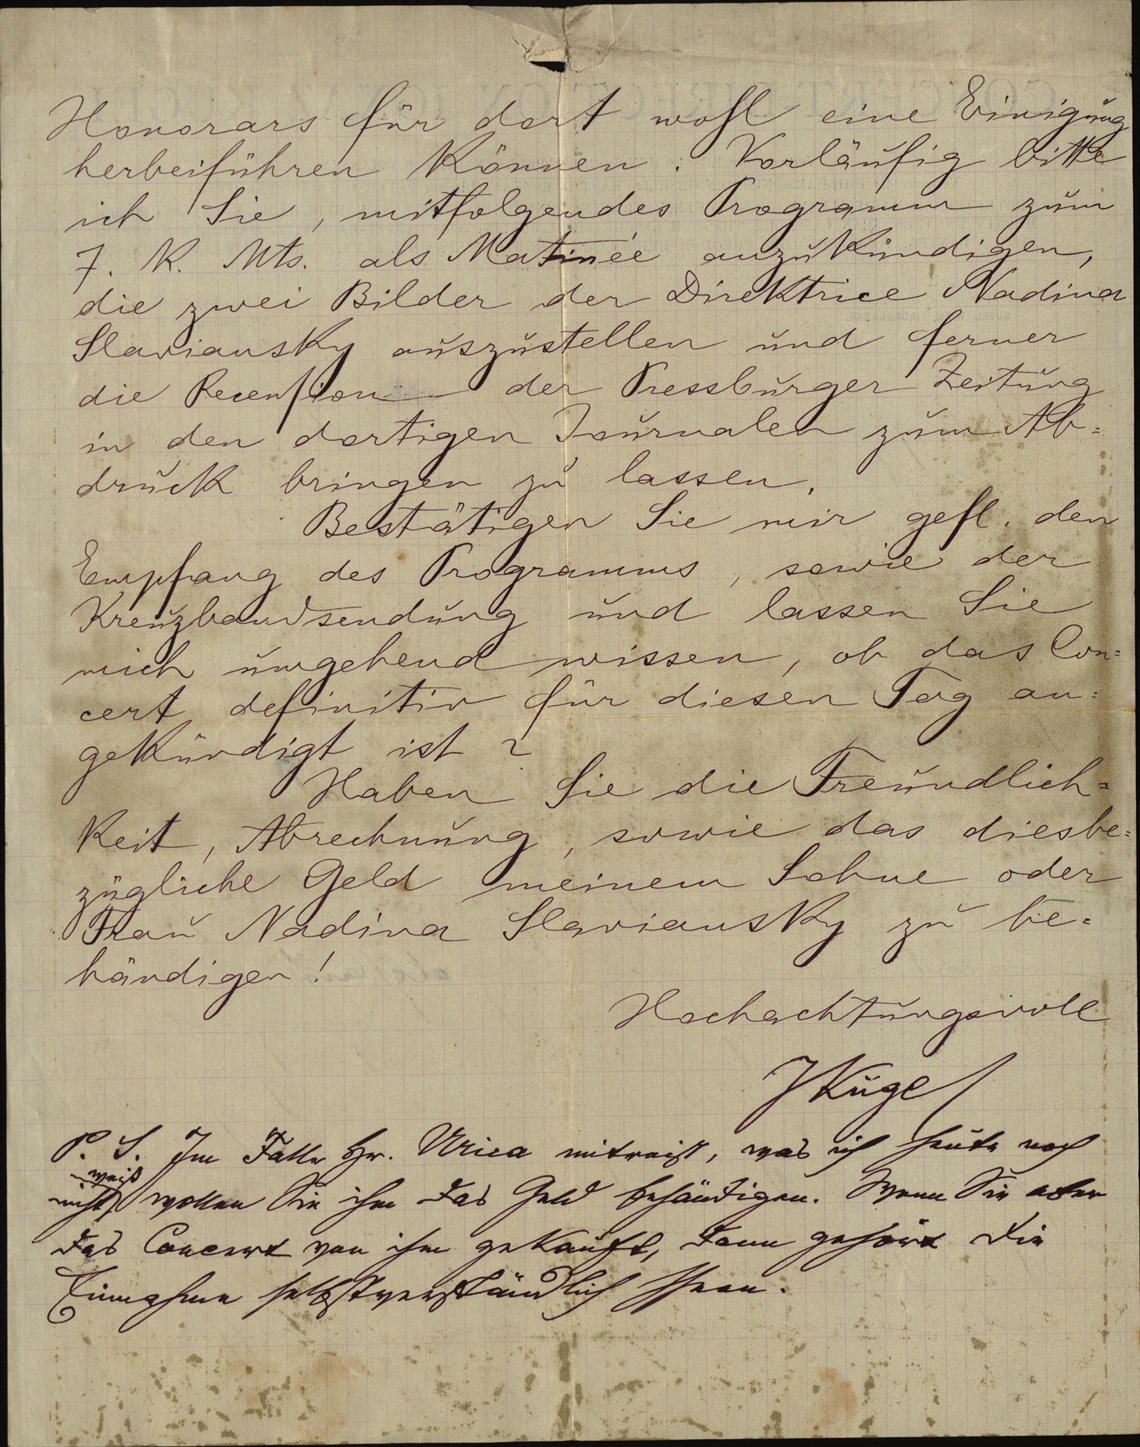 Honorars für dort wohl eine Einigung
herbeiführen können. Vorläufig bitte
ich Sie, mitfolgendes Programm zum
7. k. Mts. als Matinée anzukündigen,
die zwei Bilder der Direktrice Nadina
Slaviansky auszustellen und ferner
die Recension der Pressburger Zeitung
in den dortigen Journalen zum Ab=
druck bringen zu lassen.
Bestätigen Sie mir gefl. den
Empfang des Programms, sowie der
Kreuzbandsendung und lassen Sie
mich umgehend wissen, ob das Con=
cert definitiv für diesen Tag an=
gekündigt ist?
Haben Sie die Freundlich=
keit, Abrechnung, sowie das diesbe=
zügliche Geld meinem Sohne oder
Frau Nadina Slaviansky zu be=
händigen!
Hochachtungsvoll
JKugel
P. S. Im Falle Hr. Urica mitreist, was ich heute noch
weiß
nicht, wollen Sie ihm das Geld behändigen. Wenn Sie aber
das Concert von ihm gekauft, dann gehört die
Einnahme selbstverständlich Ihnen.